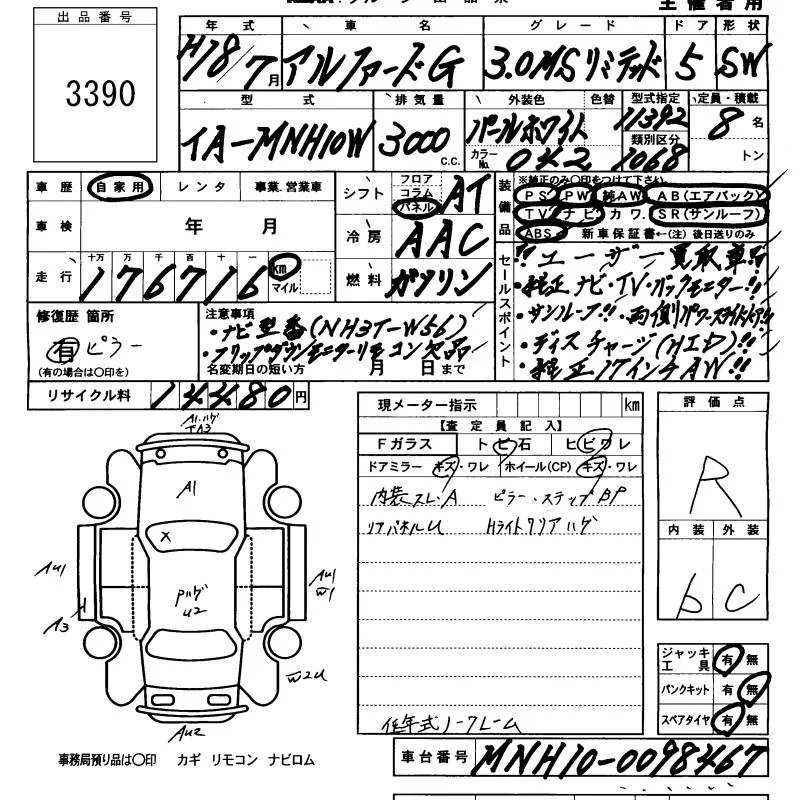 出品番号
3390
主催者用
年式 車名 グレード ドア 形状
H18/7月 アルファードG 3.0MSリミテッド 5 SW
型式 排気量 外装色 色替 型式指定 定員・積載
TA-MNH10W 3000 C.C. パールホワイト 11392 8名
カラーNo. 042 類別区分 1068 トン
車歴 自家用 レンタ 事業.営業車
シフト フロア コラム パネル AT
装備品 ※純正のみ〇印をつけて下さい.
PS PW 純AW AB(エアバック)
TV ナビ カワ. SR(サンルーフ)
ABS 新車保証書←(注)後日送りのみ
車検 年 月
冷房 AAC
走行 十万 万 千 百 十 一
176716 km マイル
燃料 ガソリン
セールスポイント
!!ユーザー買取車!!
・純正ナビ・TV・バックモニター!!
・サンルーフ!!・両側パワースライドドア!!
・ディスチャージ(HID)!!
・純正17インチAW!!
修復歴 箇所
有 ピラー
(有の場合は〇印を)
注意事項
・ナビ型番(NH3T-W56)
・フリップダウンモニターリモコン欠品
名変期日の短い方 月 日まで
リサイクル料 14480円
現メーター指示 km
【査定員記入】
Fガラス トビ石 ヒビワレ
ドアミラー キズ・ワレ ホイール(CP) キズ・ワレ
内装スレ.A ピラー・ステップBP
リアパネルU Hライトクリアハゲ
低年式ノークレーム
評価点
R
内装 外装
b C
ジャッキ工具 有 無
パンクキット 有 無
スペアタイヤ 有 無
A1.ハゲ
A1
X
Pハゲ
U2
AU1
A
A3
AU1
W1
W2U
AU2
事務局預り品は〇印 カギ リモコン ナビロム
車台番号 MNH10-0098467